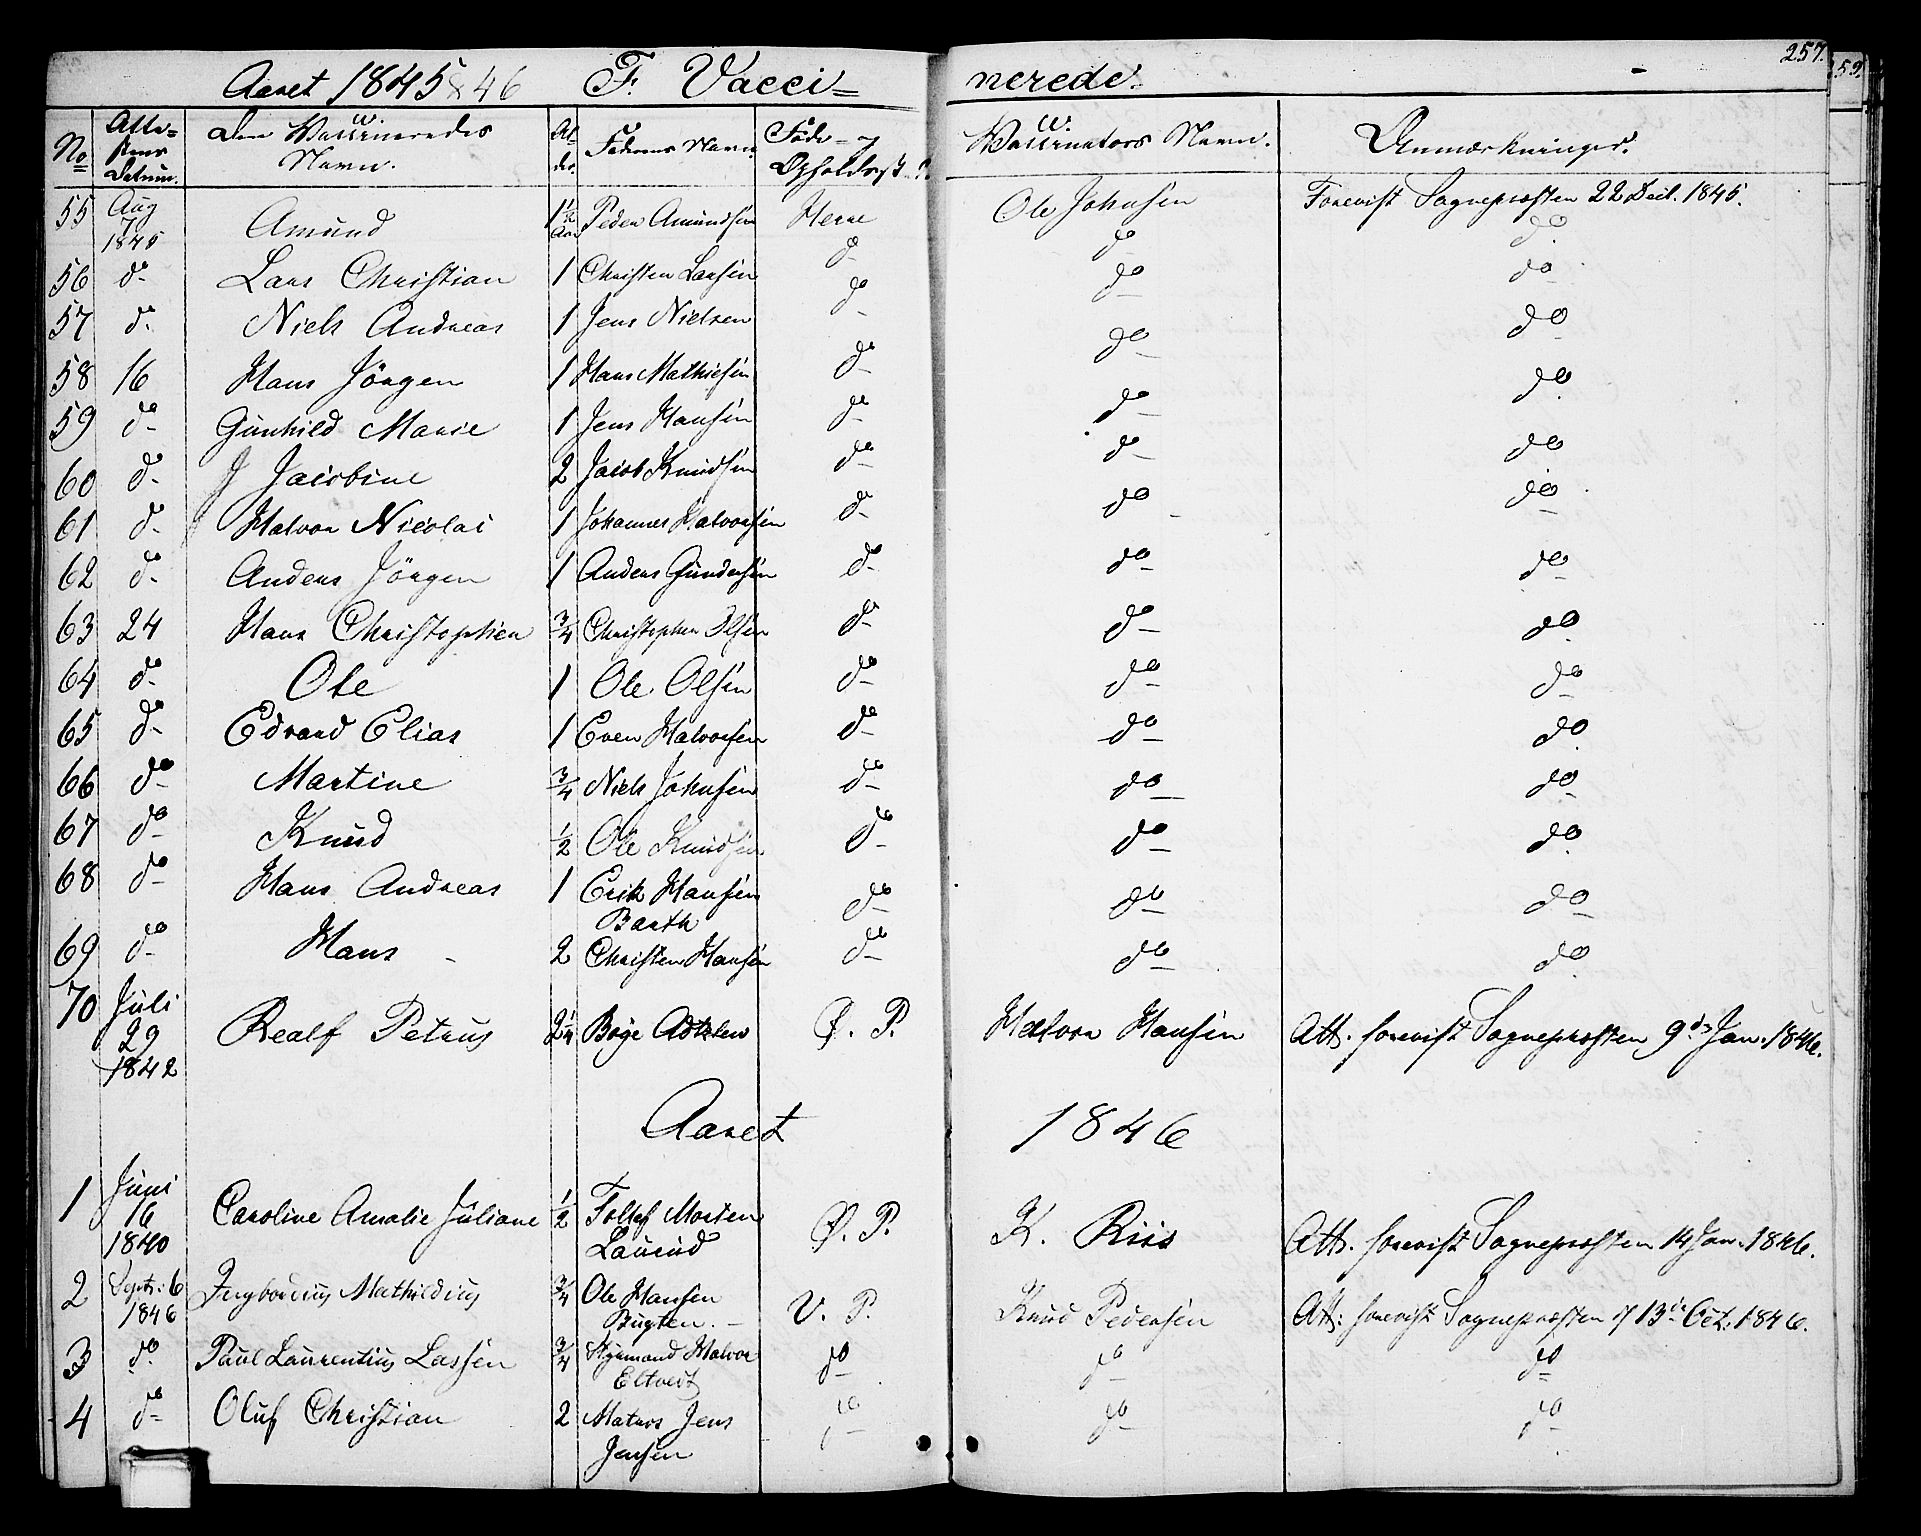 257.
59.
Aaret 1845 & 46 F. Vacci= nerede.
No Atte= stens Datum. Den Vaccineredes Navn. Al- der. Faderens Navn. Føde- og Opholdsst. Vaccinators Navn. Anmærkninger.
55 Aug 7 1845 Amund 1 1/2 Aar Peder Amundsen Herre Ole Johnsen Forevist Sognepresten 22 Decb. 1845.
56 do Lars Christian 1 Christen Larsen do do do
57 do Niels Andreas 1 Jens Nielsen do do do
58 16 Hans Jörgen 1 Hans Mathiesen do do do
59 do Gunhild Marie 1 Jens Hansen do do do
60 do J Jacobine 2 Jacob Knudsen do do do
61 do Halvor Nicolai 1 Johannes Halvorsen do do do
62 do Anders Jörgen 1 Anders Gundersen do do do
63 24 Hans Christopher 3/4 Christopher Olsen do do do
64 do Ole 1 Ole Olsen do do do
65 do Edvard Elias 1 Even Halvorsen do do do
66 do Martine 3/4 Niels Johnsen do do do
67 do Knud 1/2 Ole Knudsen do do do
68 do Hans Andreas 1 Erik Hansen Barth do do do
69 do Hans 2 Christen Hansen do do do
70 Juli 29 1842 Realf Petrus 2 1/4 Boye Ø. P. Halvor Hansen Att. forevist Sognepresten 9de Jan. 1846.
Aaret 1846
1 Juni 16 1840 Caroline Amalie Juliane 1/2 Tollef Morten Laurud Ø. P. K. Riis Att. forevist Sognepresten 14 Jan. 1846.
2 Septr: 6 1846 Ingborius Mathildius 3/4 Ole Hansen Bugten. V. P. Knud Pedersen Att: forevist Sognepresten d 13de Oct: 1846.
3 do Paul Laurentius Lassen 3/4 Halvor do do do
4 do Oluf Christian 2 Matros Jens Jensen do do do